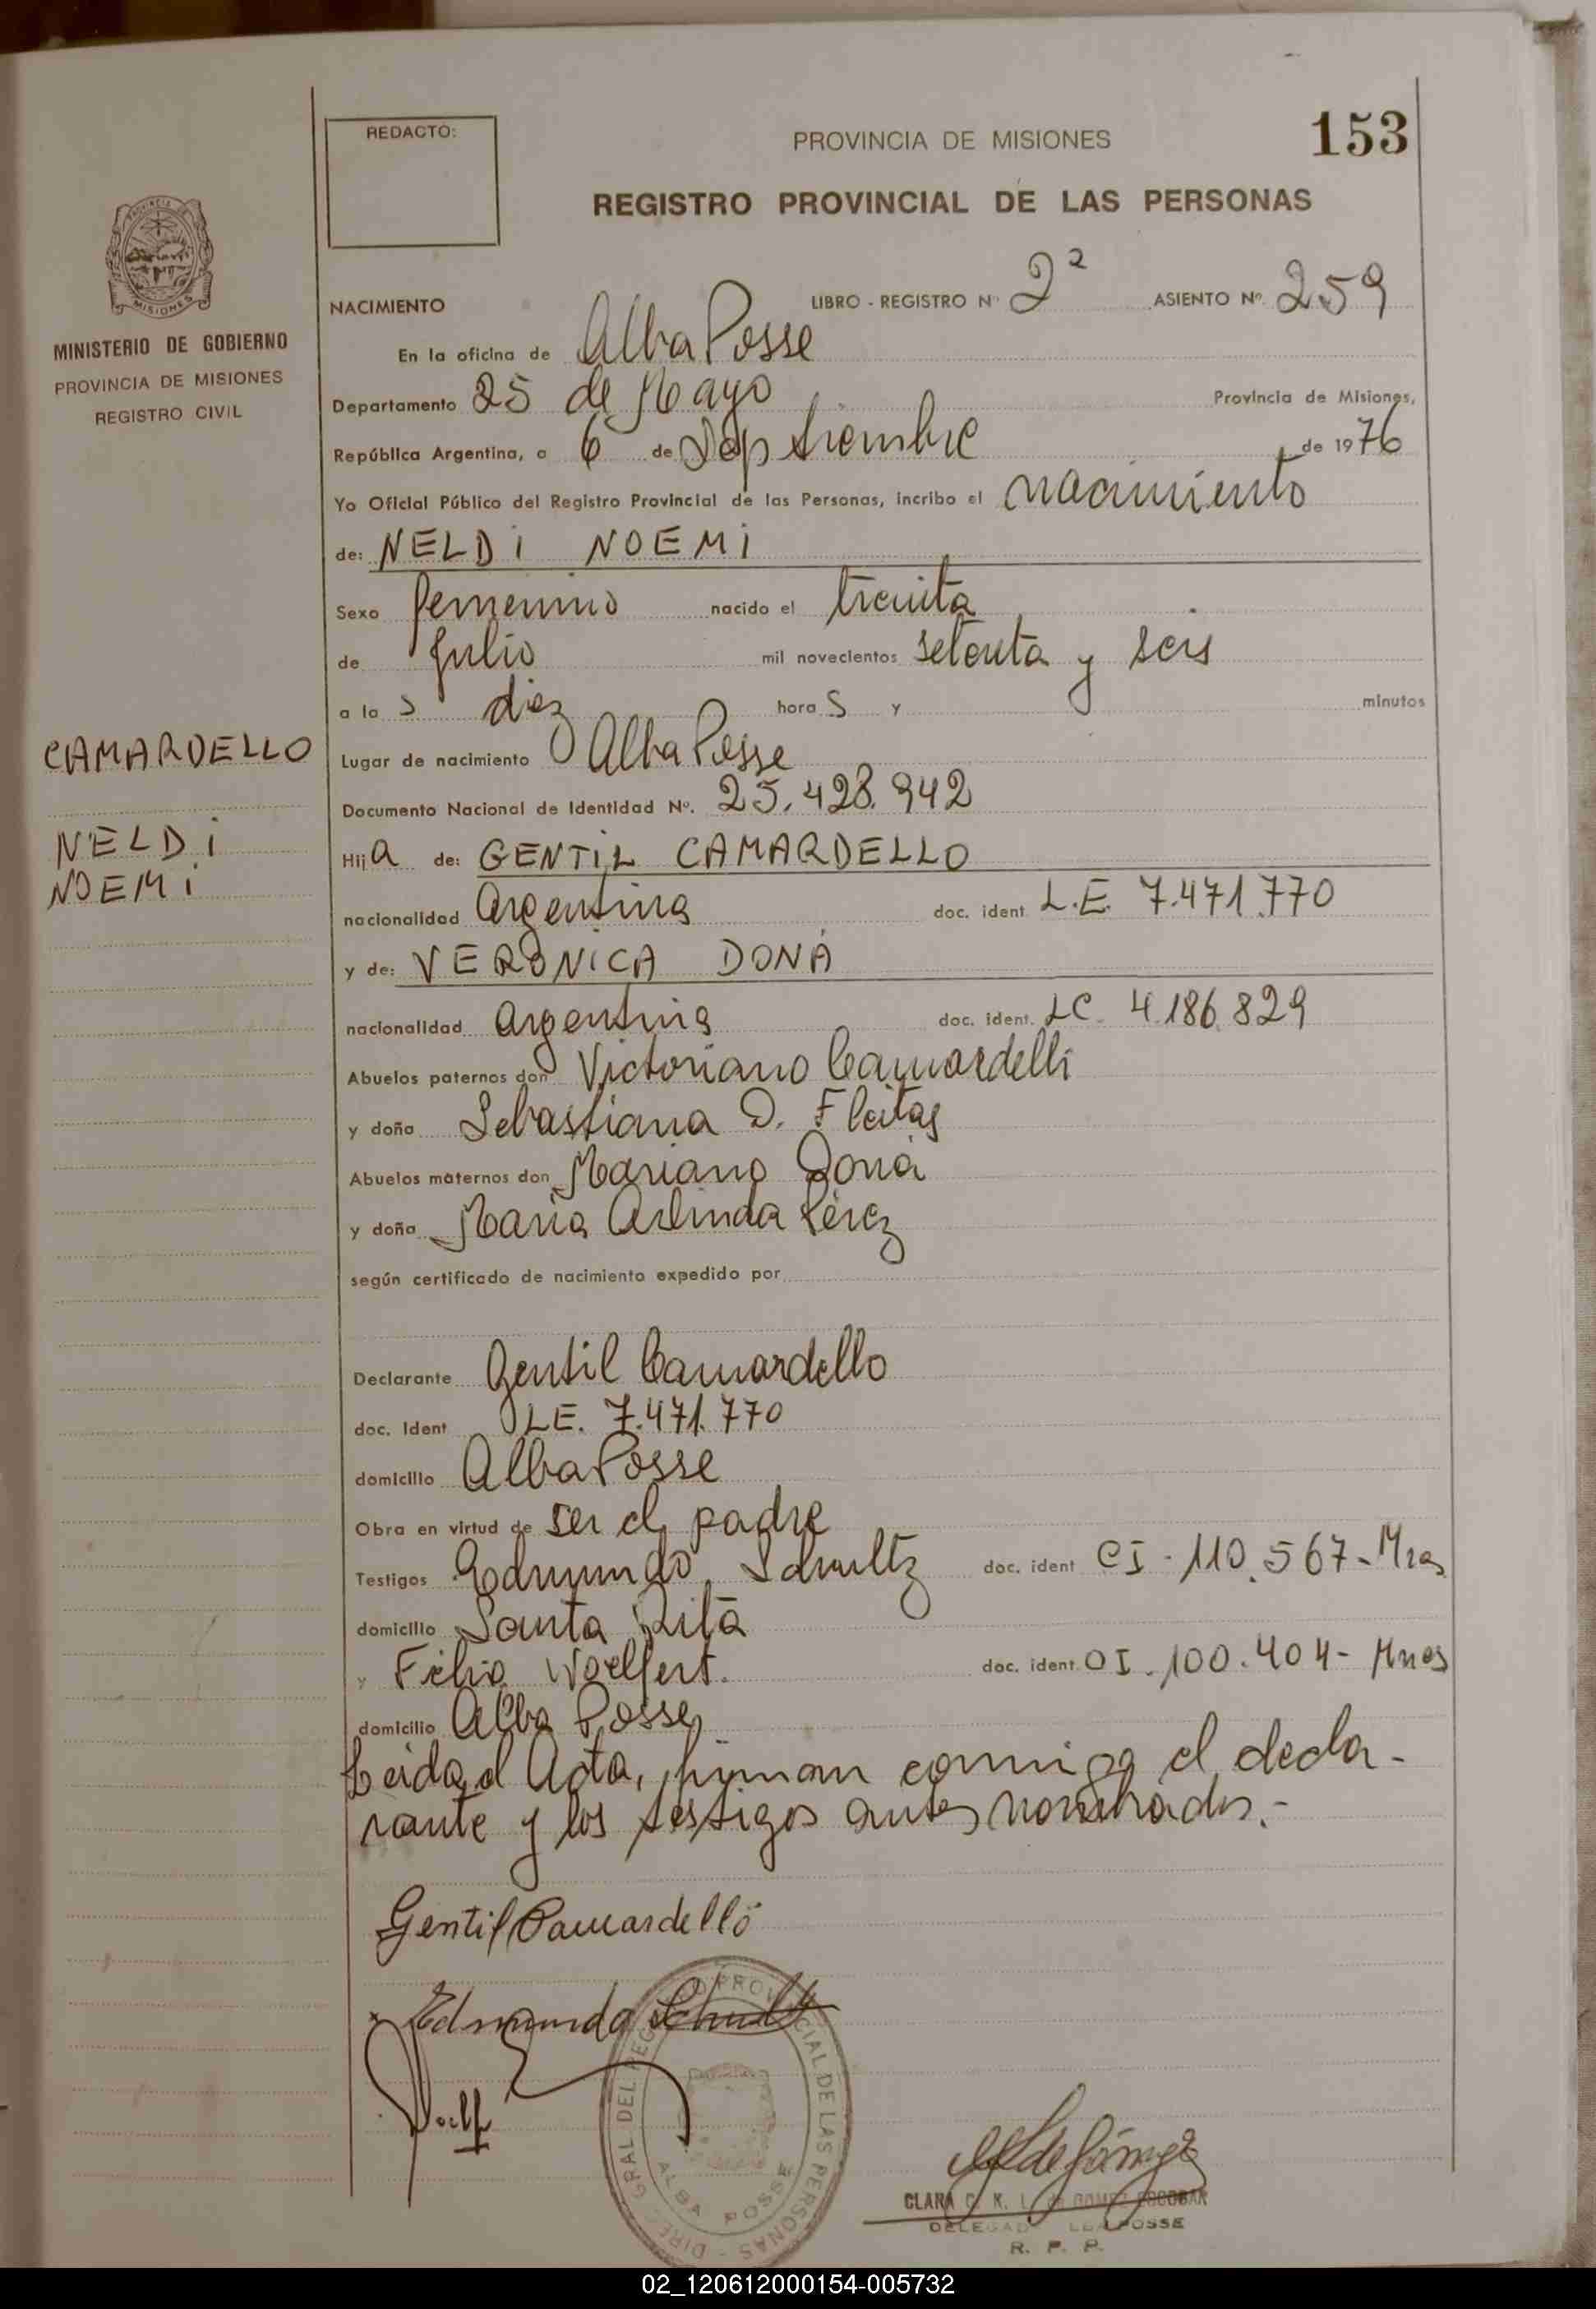 REDACTO:
PROVINCIA DE MISIONES
153
REGISTRO PROVINCIAL DE LAS PERSONAS
MISIONES
MINISTERIO DE GOBIERNO
PROVINCIA DE MISIONES
REGISTRO CIVIL
NACIMIENTO LIBRO - REGISTRO Nº 2ª ASIENTO Nº. 259
En la oficina de Alba Posse
Departamento 25 de Mayo Provincia de Misiones,
República Argentina, a 6 de Septiembre de 1976
Yo Oficial Público del Registro Provincial de las Personas, incribo el nacimiento
de: NELDi NOEMi
Sexo femenino nacido el treinta
de julio mil novecientos setenta y seis
a la s diez hora s y minutos
CAMARDELLO
NELDi
NOEMi
Lugar de nacimiento Alba Posse
Documento Nacional de Identidad Nº. 25.428.942
Hij a de: GENTiL CAMARDELLO
nacionalidad Argentina doc. ident. L.E. 7.471.770
y de: VERONICA DONÁ
nacionalidad argentina doc. ident. LC. 4.186.829
Abuelos paternos don Victoriano Camardelli
y doña Sebastiana D. Fleitas
Abuelos maternos don Mariano Doná
y doña María Arlinda Pérez
según certificado de nacimiento expedido por
Declarante Gentil Camardello
doc. Ident LE. 7.471.770
domicilio Alba Posse
Obra en virtud de ser el padre
Testigos Edmundo Schultz doc. ident CI - 110.567 - Mnes
domicilio Santa Rita
y Woelfert. doc. ident. CI. 100.404 - Mnes
domicilio Alba Posse
Leida el Acta, firman conmigo el decla-
rante y los testigos antes nombrados.-
Gentil Camardello
Edmundo Schultz
DIREC. GRAL DEL REG PROVINCIAL DE LAS PERSONAS -
ALBA POSSE
CLARA C. K. L. de GOMEZ ESCOBAR
R. P. P.
02_120612000154-005732